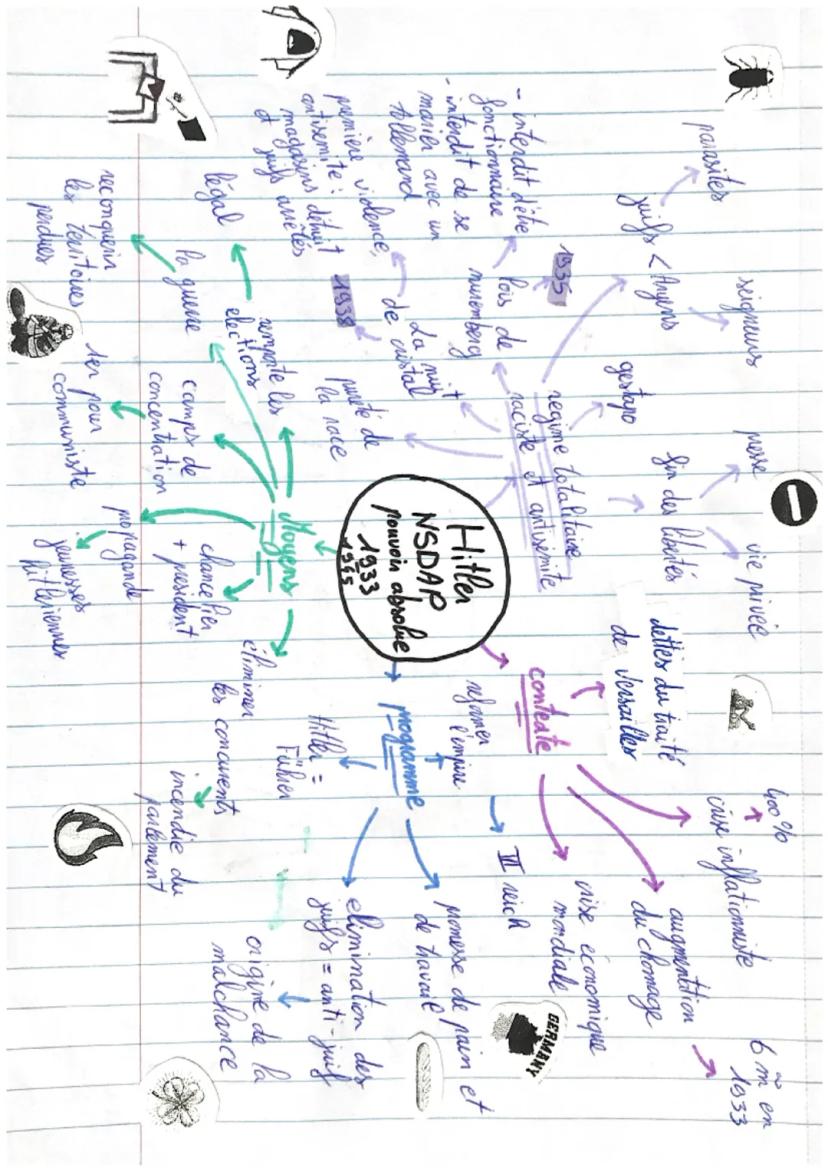 Hitler
NSDAP
pouvoir absolue
1933
1945
contexte
dettes du traité
de Versailles
400%
crise inflationniste
augmentation
du chomage
6 m en
1933
crise économique
mondiale
GERMANY
programme
reformer
l'empire
III reich
promesse de pain et
de travail
elimination des
juifs = anti-juif
origine de la
malchance
Hitler =
Führer
Moyens
éliminer
les concurrents
incendie du
parlement
chancelier
+ president
propagande
jeunesses
hitlériennes
camps de
concentration
1er pour
communiste
la guerre
reconquerir
les territoires
perdues
remporte les
elections
légal
regime totalitaire
raciste et antisémite
pureté de
la race
La nuit
de cristal
1938
première violence
antisemite :
magasins détruit
et juifs arrêtés
lois de
nuremberg
1935
- interdit d'être
fonctionnaire
- interdit de se
marier avec un
Allemand
juifs < Aryens
parasites
seigneurs
gestapo
fin des libertés
presse
vie privée